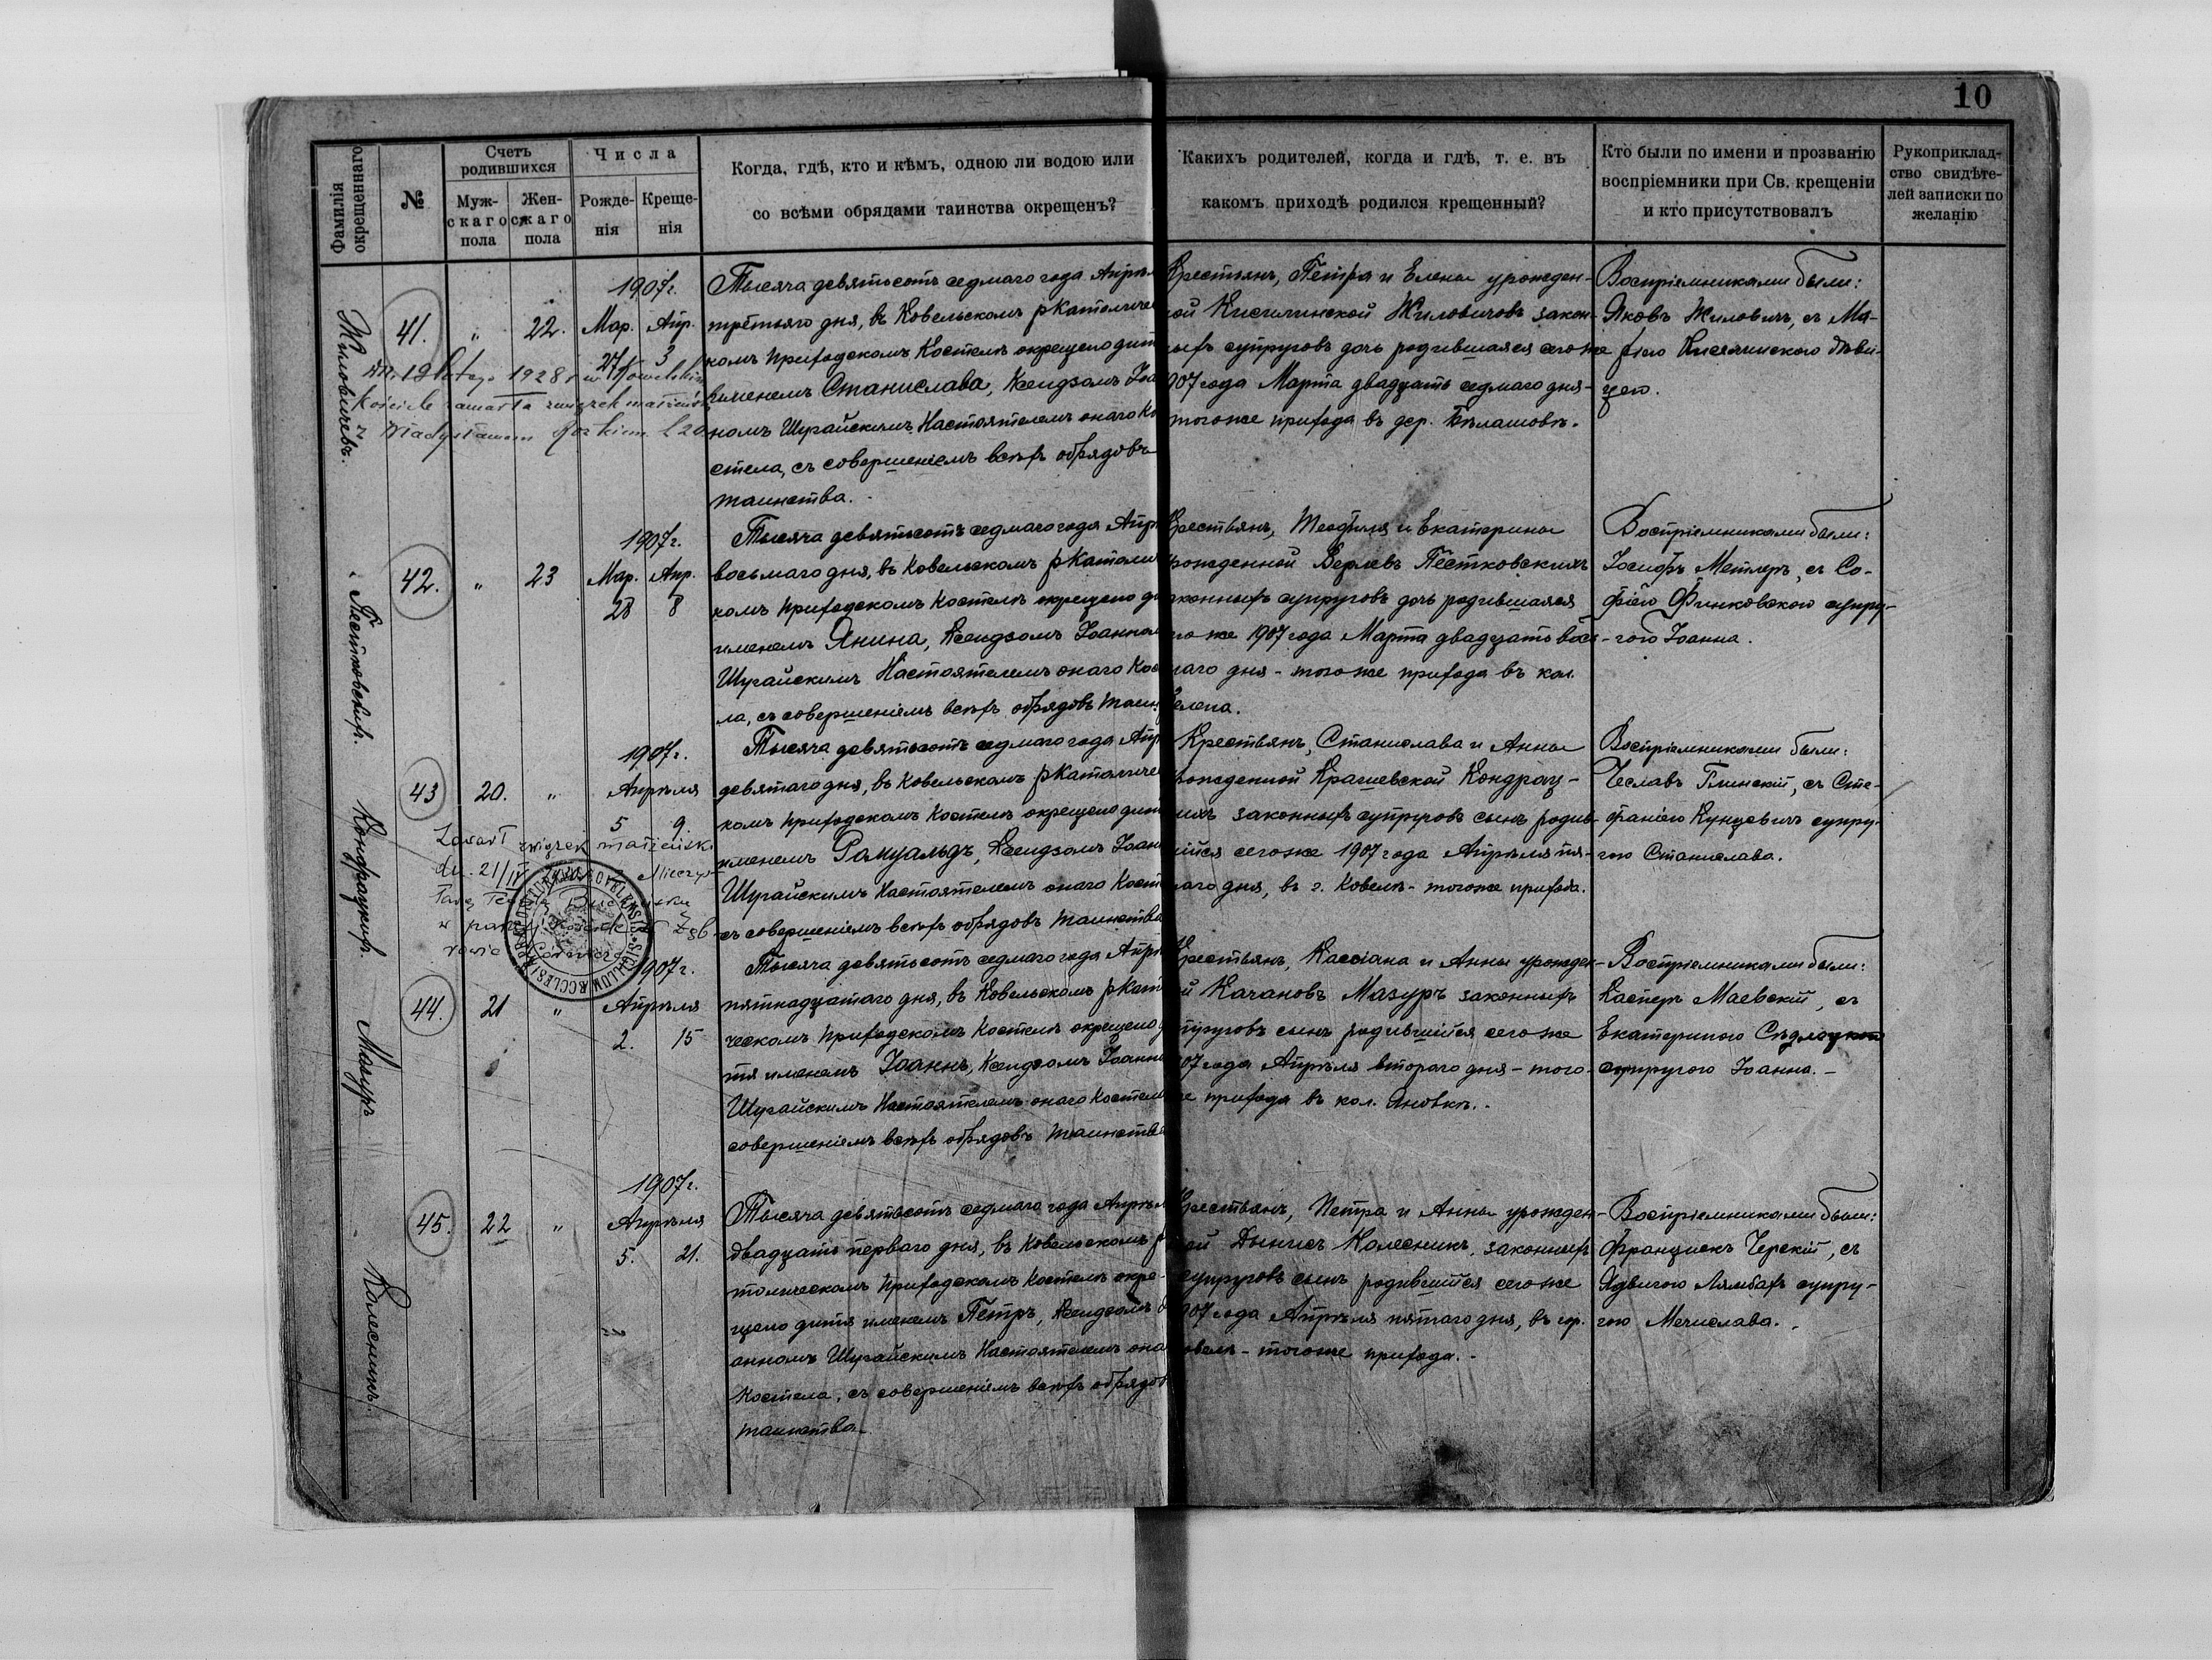 10
Фамилія окрещеннаго
№
Счетъ родившихся
Мужскаго пола
Женскаго пола
Числа
Рожденія
Крещенія
Когда, гдѣ, кто и кѣмъ, одною ли водою или
со всѣми обрядами таинства окрещенъ?
Какихъ родителей, когда и гдѣ, т. е. въ
какомъ приходѣ родился крещенный?
Кто были по имени и прозванію
воспріемники при Св. крещеніи
и кто присутствовалъ
Рукоприклад-
ство свидѣте-
лей записки по
желанію
Жиловичевъ.
41.
"
22.
1907г.
Мар. Апр.
27 3
1928 r w Kowelskim
Kościele zawarła związek małżeński
z Władysławem
Тысяча девятьсотъ седмаго года Апрѣл
третьяго дня, въ Ковельскомъ рКатоличес
комъ приходскомъ Костелѣ окрещено дит
именемъ Станислава, Ксендзомъ Іоа
номъ Шугайскимъ Настоятелемъ онаго Ко
стела, съ совершеніемъ всѣхъ обрядовъ
таинства.
Крестьянъ, Петра и Елены урожден-
ной Кисилинской Жиловичовъ закон-
ныхъ супруговъ дочь родившаяся сего же
907 года Марта двадцать седмаго дня -
тогоже прихода въ дер. Бѣлашовѣ.
Воспріемниками были:
Яковъ Жиловичъ, съ Ма-
ріею Кисилинскою дѣви-
цею.
Пестковскихъ.
42.
"
23
1907г.
Мар. Апр.
28 8
Тысяча девятьсотъ седмаго года Апр
восьмаго дня, въ Ковельскомъ рКатоли
комъ приходскомъ Костелѣ окрещено ди
именемъ Янина, Ксендзомъ Іоанном
Шугайскимъ Настоятелемъ онаго Кос
ла, съ совершеніемъ всѣхъ обрядовъ таин
Крестьянъ, Теофиля и Екатерины
рожденной Верлевъ Пестковскихъ
аконныхъ супруговъ дочь родившаяся
го же 1907 года Марта двадцать вось-
маго дня - того же прихода въ кол.
Воспріемниками были:
Іосифъ Метлеръ, съ Со-
фіею Финковскою супру-
гою Іоанна.
Кондрацкихъ.
43
20.
"
1907г.
Апрѣля
5 9.
Zawarł związek małżeński
dn. 21/IV
Тысяча девятьсотъ седмаго года Апр
девятаго дня, въ Ковельскомъ рКатоличе
комъ приходскомъ Костелѣ окрещено дит
именемъ Ромуальдъ, Ксендзомъ Іоан
Шугайскимъ Настоятелемъ онаго Косте
съ совершеніемъ всѣхъ обрядовъ таинства
Крестьянъ, Станислава и Анны
рожденной Крашевской Кондрац-
кихъ законныхъ супруговъ сынъ родив-
шійся сегоже 1907 года Апрѣля пя-
таго дня, въ г. Ковелѣ - тогоже прихода.
Воспріемниками были:
Чеславъ Глинскій, съ Сте-
фаніею Кунцевичъ супру-
гою Станислава.
Мазуръ
44.
21
"
1907г.
Апрѣля
2. 15
Тысяча девятьсотъ седмаго года Апрѣ
пятнадцатаго дня, въ Ковельскомъ рКато
ческомъ приходскомъ Костелѣ окрещено д
тя именемъ Іоаннъ, Ксендзомъ Іоанно
Шугайскимъ Настоятелемъ онаго Костела
совершеніемъ всѣхъ обрядовъ таинства
Крестьянъ, Кассіана и Анны урожден-
й Качановъ Мазуръ законныхъ
супруговъ сынъ родившійся сегоже
07 года Апрѣля втораго дня - того-
же прихода въ кол. Яновкѣ.
Воспріемниками были:
Касперъ Маевскій, съ
Екатериною Сѣдлецкою
супругою Іоанна. -
Колесникъ.
45.
22
"
1907г.
Апрѣля
5. 21.
Тысяча девятьсотъ седмаго года Апрѣл
двадцать перваго дня, въ Ковельскомъ р
толическомъ приходскомъ Костелѣ окре-
щено дитя именемъ Петръ, Ксендзомъ І
анномъ Шугайскимъ Настоятелемъ она
Костела, съ совершеніемъ всѣхъ обрядов
таинства
Крестьянъ, Петра и Анны урожден-
ной Дынисъ Колесникъ, законныхъ
супруговъ сынъ родившійся сегоже
907 года Апрѣля пятаго дня, въ гор.
овелѣ - тогоже прихода. -
Воспріемниками были:
Францискъ Черскій, съ
Ядвигою Лямбахъ супру-
гою Мечислава.